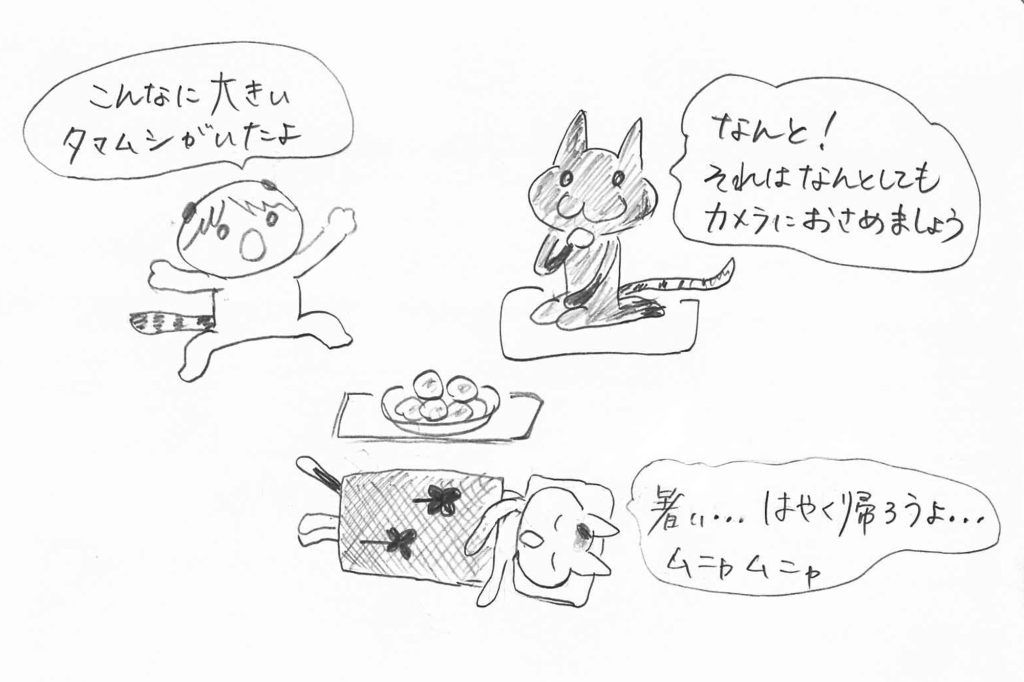 こんなに大きい
タマムシがいたよ
なんと！
それはなんとしても
カメラにおさめましょう
暑い… はやく帰ろうよ…
ムニャムニャ